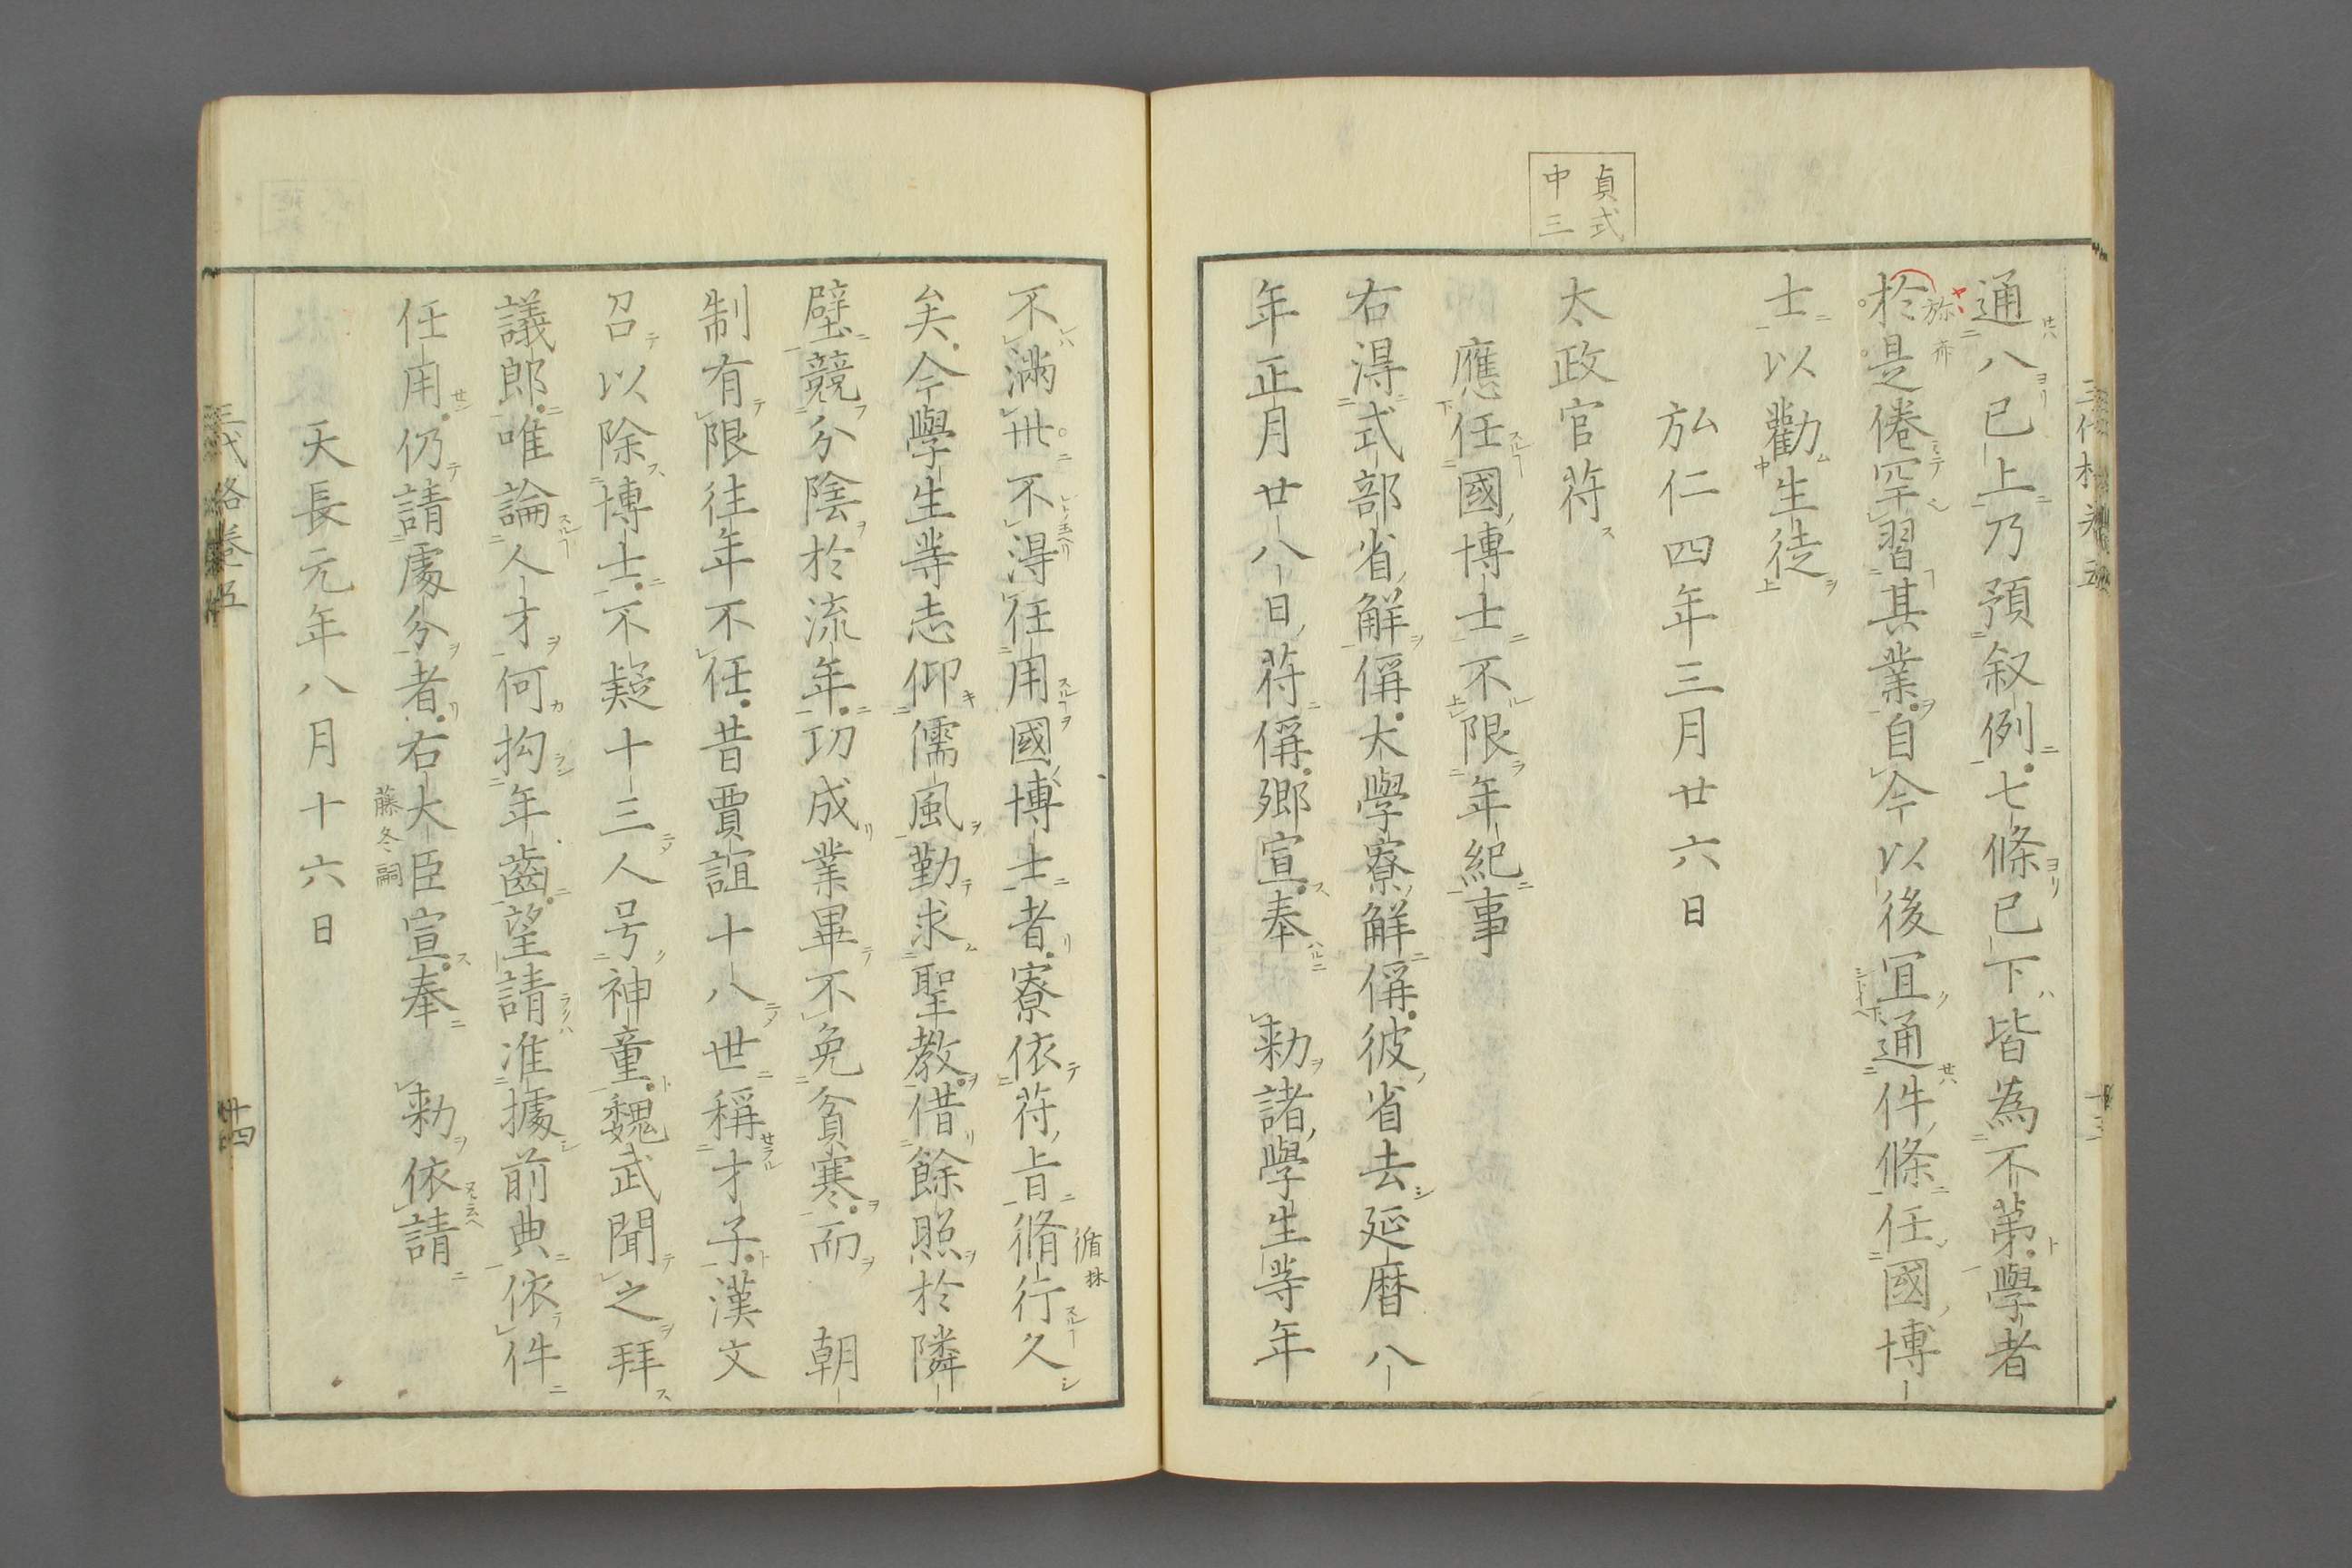 貞式
中三
通八已上乃預叙例七條已下皆為不第學者
於是倦罕習其業自今以後冝通件條任國博
士以勸生徒
弘仁四年三月廿六日
太政官苻
應任國博士不限年紀事
右得式部省解偁大學寮解偁彼省去延暦八
年正月廿八日苻偁郷宣奉　勅諸學生等年
不滿卅不得任用國博士者寮依苻旨脩行久
循 林
矣今學生等志仰儒風勤求聖教借餘照於隣
壁競分陰於流年功成業畢不免貧寒而　朝
制有限往年不任昔賈誼十八世稱才子漢文
召以除博士不疑十三人号神童魏武聞之拜
議郎唯論人才何拘年齒望請准據前典依件
任用仍請處分者右大臣宣奉　勅依請
藤冬嗣
天長元年八月十六日
三代格巻五
十四